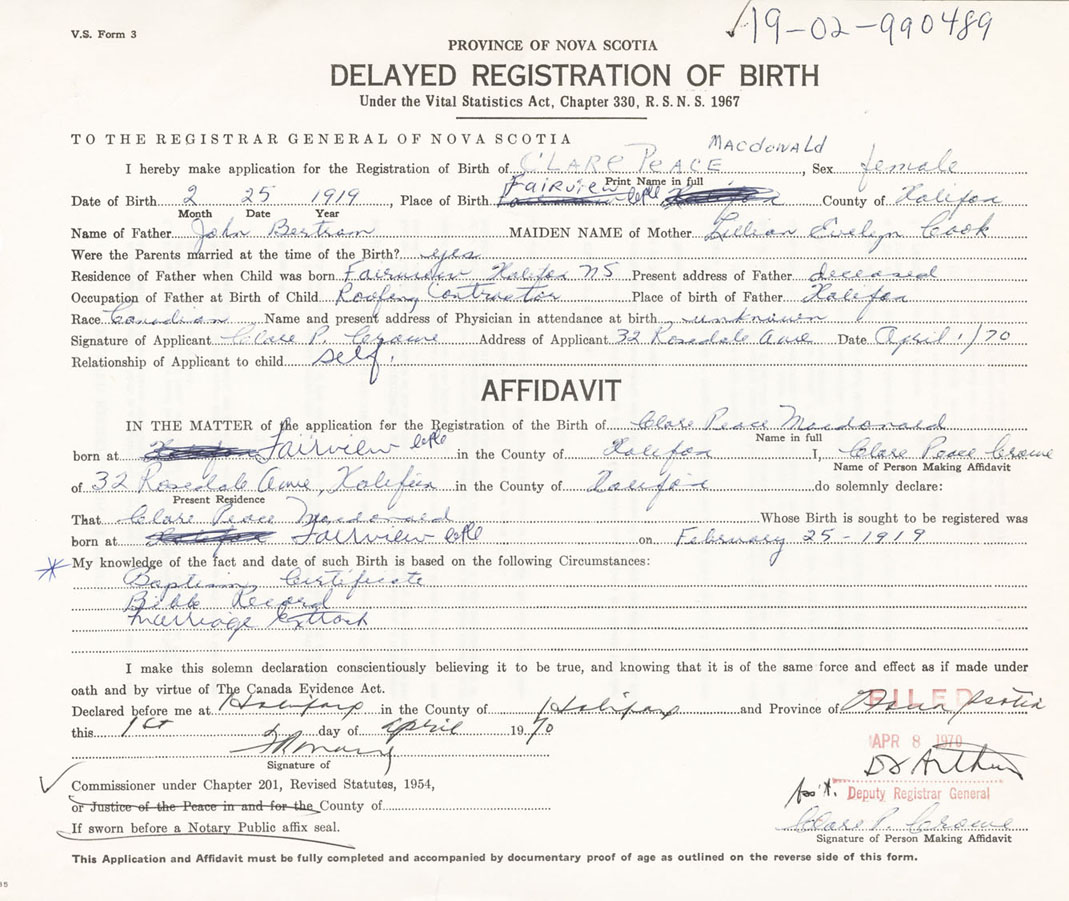 V.S. Form 3
19-02-990489
PROVINCE OF NOVA SCOTIA
DELAYED REGISTRATION OF BIRTH
Under the Vital Statistics Act, Chapter 330, R.S.N.S. 1967
TO THE REGISTRAR GENERAL OF NOVA SCOTIA
MACDONALD
I hereby make application for the Registration of Birth of CLARE PEACE, Sex female
Print Name in full
Date of Birth 2 25 1919, Place of Birth FAIRVIEW County of Halifax
Month Date Year
Name of Father John Bertram MAIDEN NAME of Mother Lillian Evelyn Cook
Were the Parents married at the time of the Birth? yes
Residence of Father when Child was born Fairview Halifax NS Present address of Father deceased
Occupation of Father at Birth of Child Roofing Contractor Place of birth of Father Halifax
Race Canadian Name and present address of Physician in attendance at birth unknown
Signature of Applicant Clare P. Crowe Address of Applicant 32 Rosedale Ave Date April 1/70
Relationship of Applicant to child self
AFFIDAVIT
IN THE MATTER of the application for the Registration of the Birth of Clare Peace Macdonald
Name in full
born at Fairview in the County of Halifax I, Clare Peace Crowe
Name of Person Making Affidavit
of 32 Rosedale Ave, Halifax in the County of Halifax do solemnly declare:
Present Residence
That Clare Peace Macdonald Whose Birth is sought to be registered was
born at Fairview on February 25-1919
* My knowledge of the fact and date of such Birth is based on the following Circumstances:
Baptism Certificate
Bible Record
Marriage Extract
I make this solemn declaration conscientiously believing it to be true, and knowing that it is of the same force and effect as if made under
oath and by virtue of The Canada Evidence Act.
Declared before me at Halifax in the County of Halifax and Province of Nova Scotia
FILED
this 1st day of April 1970
APR 8 1970
Signature of
Commissioner under Chapter 201, Revised Statutes, 1954,
Deputy Registrar General
or Justice of the Peace in and for the County of
Clare P. Crowe
If sworn before a Notary Public affix seal.
Signature of Person Making Affidavit
This Application and Affidavit must be fully completed and accompanied by documentary proof of age as outlined on the reverse side of this form.